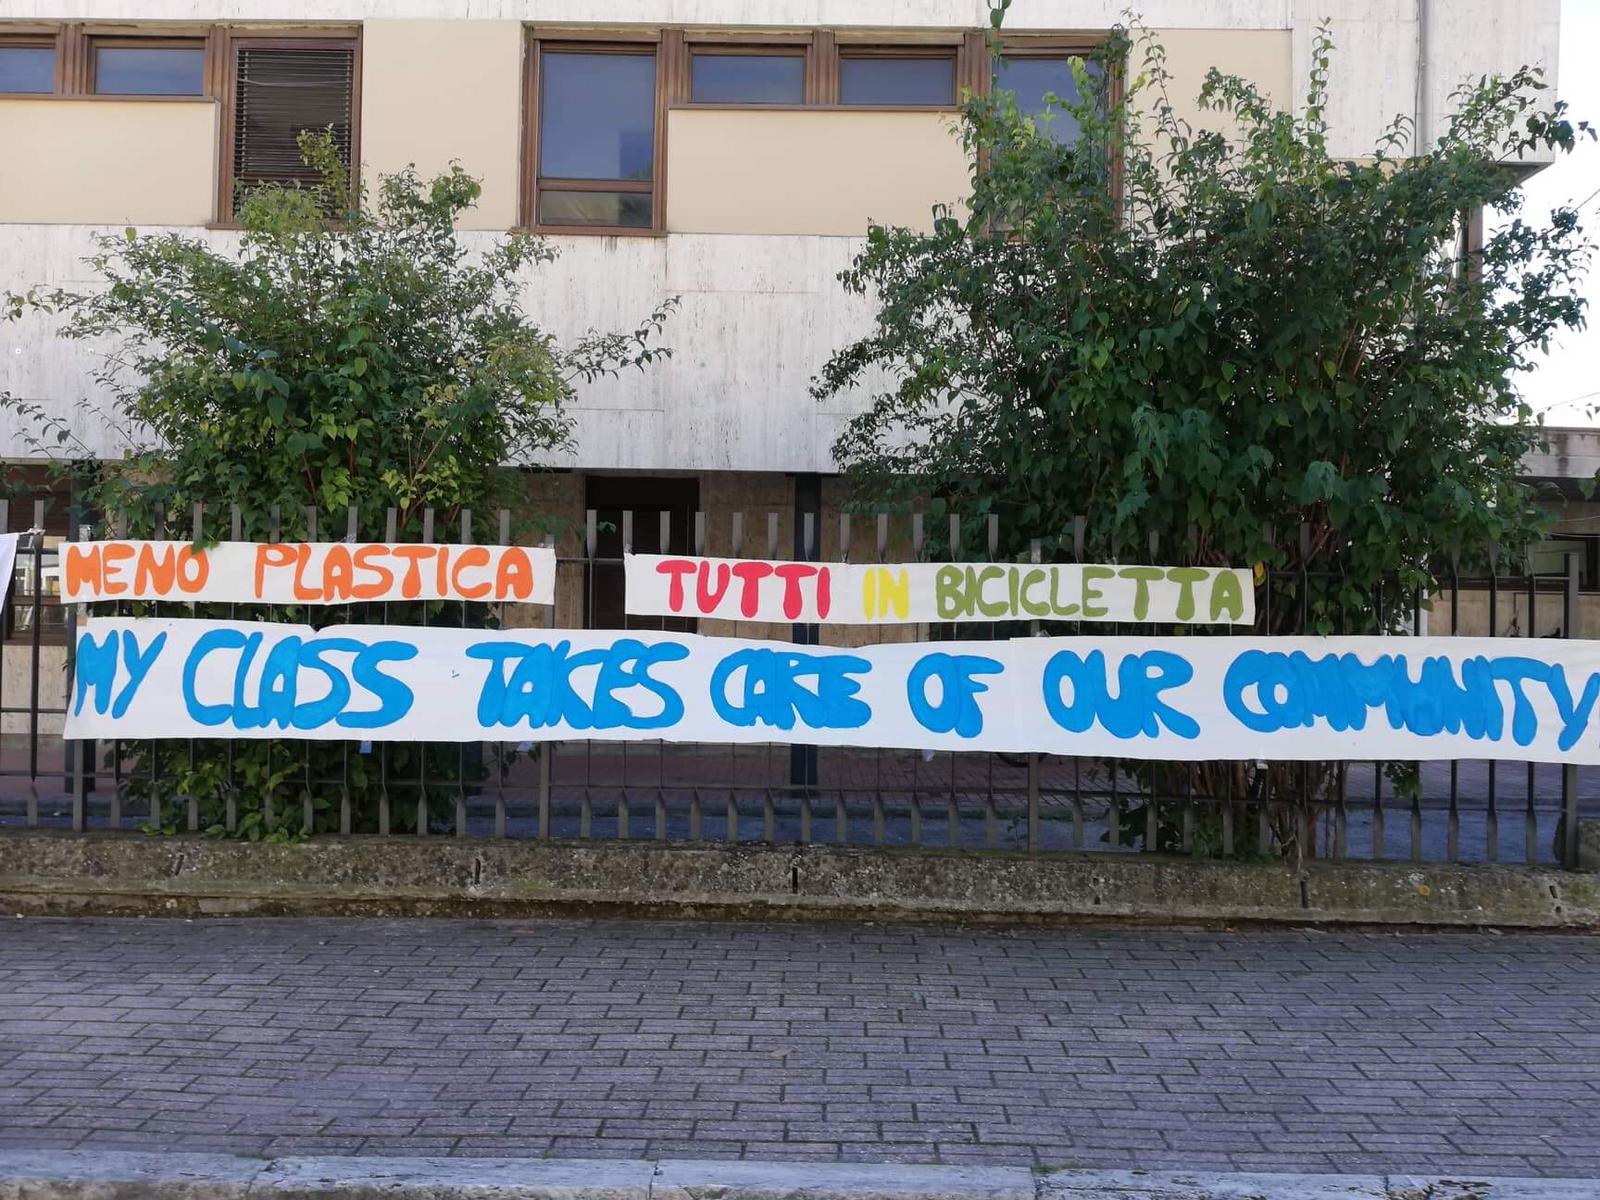 MENO PLASTICA
TUTTI IN BICICLETTA
MY CLASS TAKES CARE OF OUR COMMUNITY